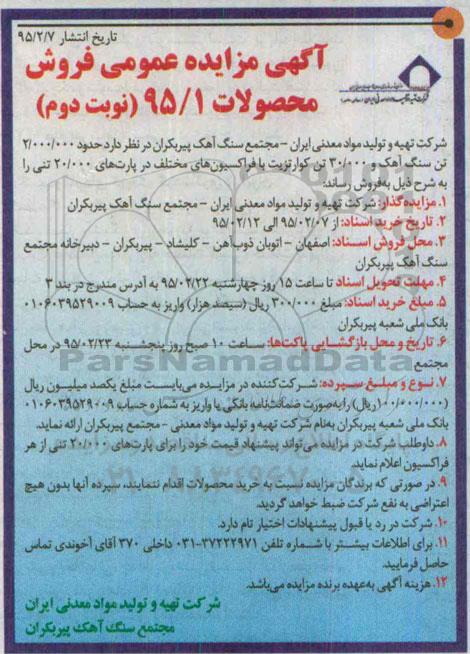 تاریخ انتشار ۹۵/۲/۷
آگهی مزایده عمومی فروش
محصولات ۹۵/۱ (نوبت دوم)
شرکت تهیه و تولید مواد معدنی ایران - مجتمع سنگ آهک پیربکران در نظر دارد حدود ۲/۰۰۰/۰۰۰
تن سنگ آهک و ۳۰/۰۰۰ تن کوارتزیت با فراکسیون‌های مختلف در پارت‌های ۲۰/۰۰۰ تنی را
به شرح ذیل به‌فروش رساند:
۱. مزایده‌گذار: شرکت تهیه و تولید مواد معدنی ایران - مجتمع سنگ آهک پیربکران
۲. تاریخ خرید اسناد: از ۹۵/۰۲/۰۷ الی ۹۵/۰۲/۱۲
۳. محل فروش اسناد: اصفهان - اتوبان ذوب‌آهن - کلیشاد - پیربکران - دبیرخانه مجتمع
سنگ آهک پیربکران
۴. مهلت تحویل اسناد تا ساعت ۱۵ روز چهارشنبه ۹۵/۰۲/۲۲ به آدرس مندرج در بند ۳
۵. مبلغ خرید اسناد: مبلغ ۳۰۰/۰۰۰ ریال (سیصد هزار) واریز به حساب ۰۱۰۶۰۳۹۵۲۹۰۰۹
بانک ملی شعبه پیربکران
۶. تاریخ و محل بازگشایی پاکت‌ها: ساعت ۱۰ صبح روز پنجشنبه ۹۵/۰۲/۲۳ در محل
مجتمع
۷. نوع و مبلغ سپرده: شرکت‌کننده در مزایده می‌بایست مبلغ یکصد میلیون ریال
(۱۰۰/۰۰۰/۰۰۰ریال) را به‌صورت ضمانت‌نامه بانکی یا واریز به شماره حساب ۰۱۰۶۰۳۹۵۲۹۰۰۹
بانک ملی شعبه پیربکران به‌نام شرکت تهیه و تولید مواد معدنی - مجتمع پیربکران ارائه نماید.
۸. داوطلب شرکت در مزایده می‌تواند پیشنهاد قیمت خود را برای پارت‌های ۲۰/۰۰۰ تنی از هر
فراکسیون اعلام نماید.
۹. در صورتی که برندگان مزایده نسبت به خرید محصولات اقدام ننمایند، سپرده آنها بدون هیچ
اعتراضی به نفع شرکت ضبط خواهد گردید.
۱۰. شرکت در رد یا قبول پیشنهادات اختیار تام دارد.
۱۱. برای اطلاعات بیشتر با شماره تلفن ۳۷۲۲۲۹۷۱-۰۳۱ داخلی ۳۷۰ آقای آخوندی تماس
حاصل فرمایید.
۱۲. هزینه آگهی به‌عهده برنده مزایده می‌باشد.
شرکت تهیه و تولید مواد معدنی ایران
مجتمع سنگ آهک پیربکران
ParsNamadData